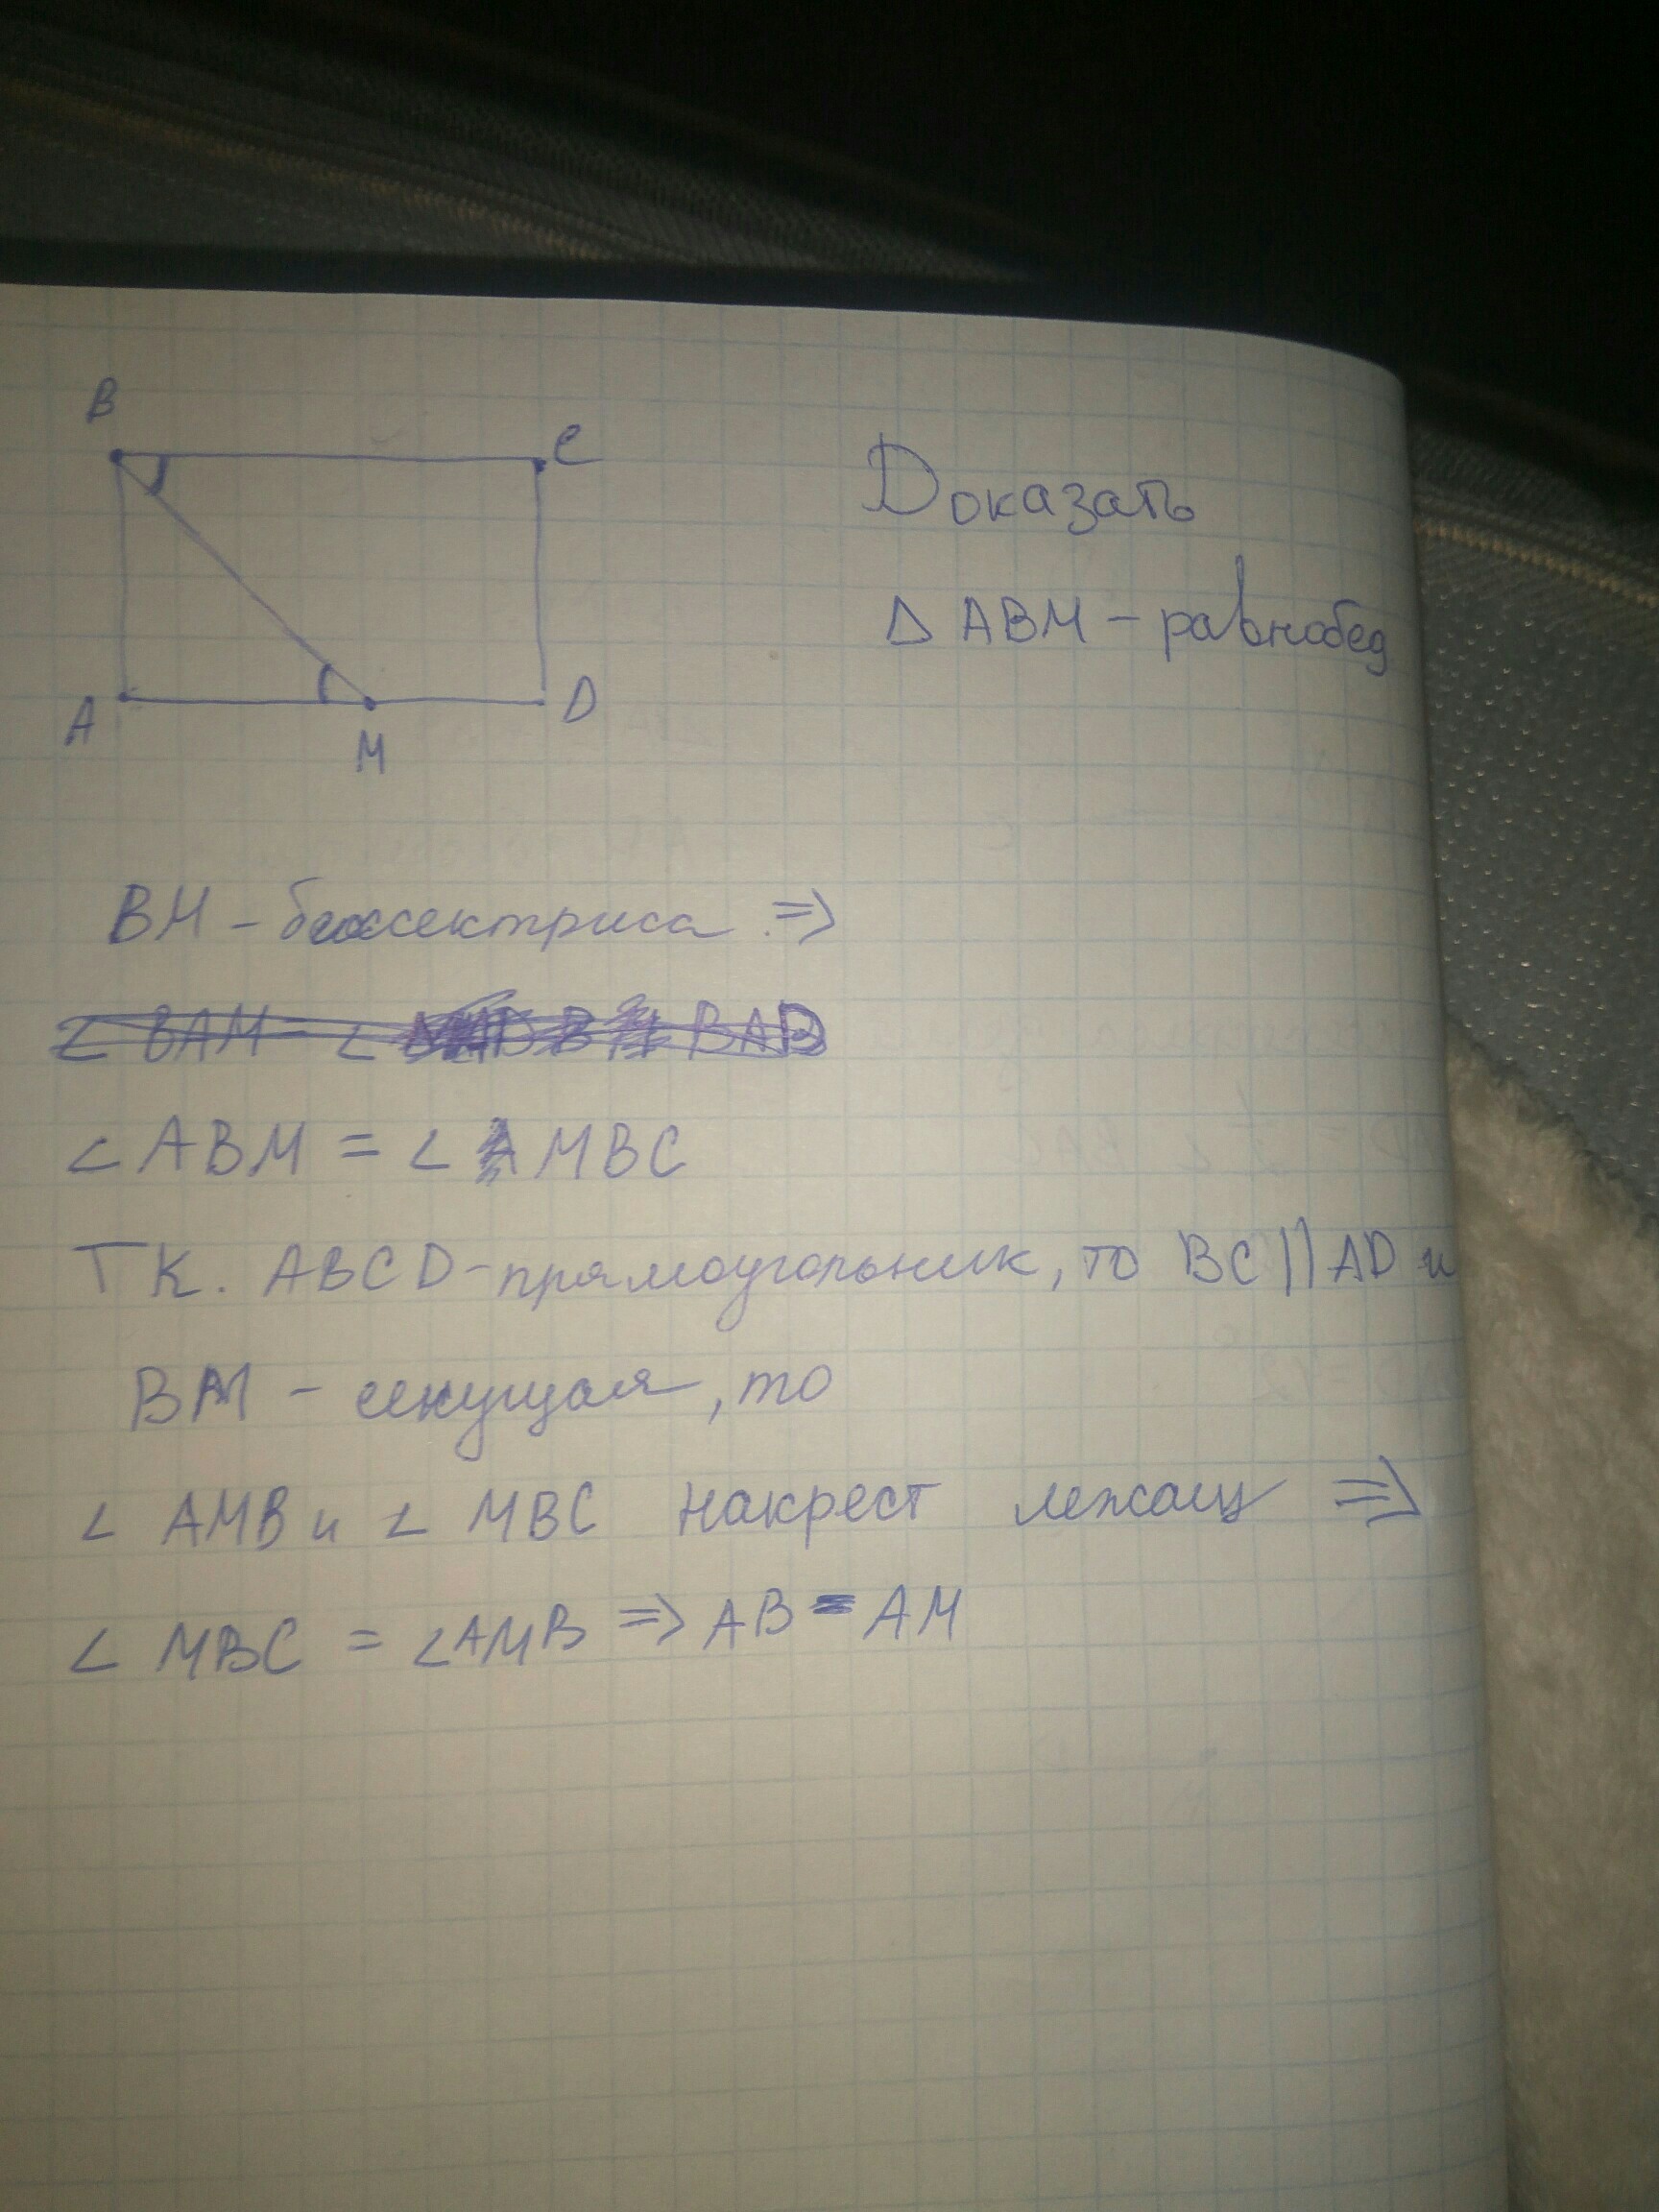 B
C
Доказать
Δ ABM – равнобед
A
M
D
BM – биссектриса =>
∠ BAM = ∠ BAB
∠ ABM = ∠ MBC
Т К. ABCD – прямоугольник, то BC || AD и
BM – секущая, то
∠ AMB и ∠ MBC накрест лежащ =>
∠ MBC = ∠AMB => AB = AM